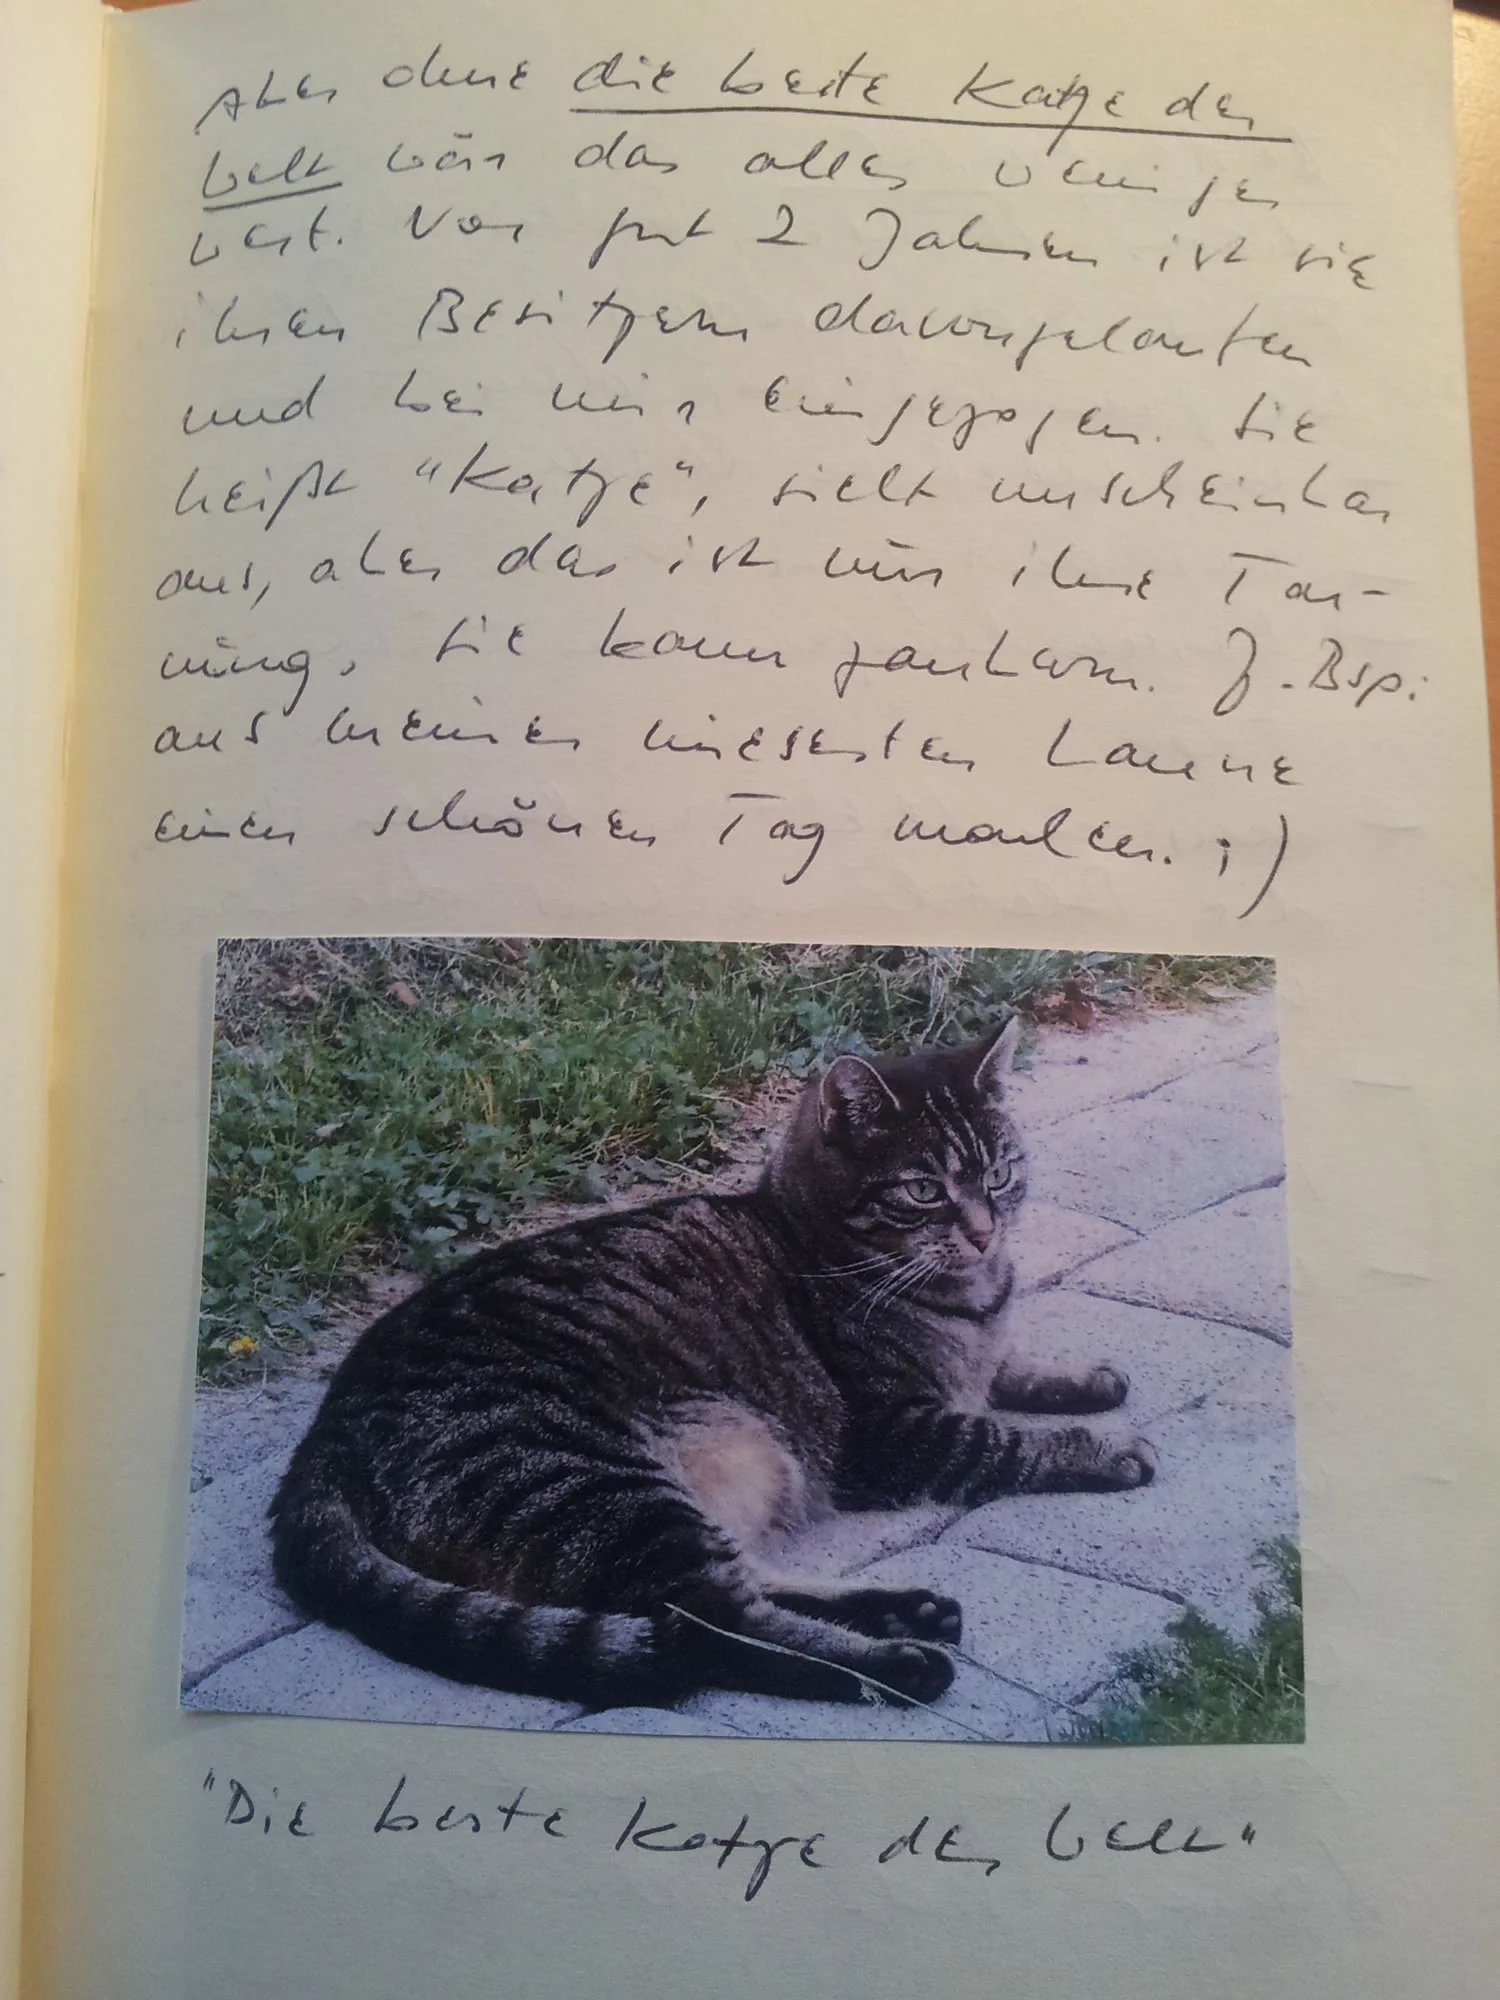 Aber ohne die beste Katze der
Welt wär das alles weniger
wert. Vor gut 2 Jahren ist sie
ihren Besitzern davongelaufen
und bei mir eingezogen. Sie
heißt "Katze", sieht unscheinbar
aus, aber das ist nur ihre Tar-
nung. Sie kann zaubern. Z. Bsp.:
aus meiner miesesten Laune
einen schönen Tag machen. ;)
"Die beste Katze der Welt"